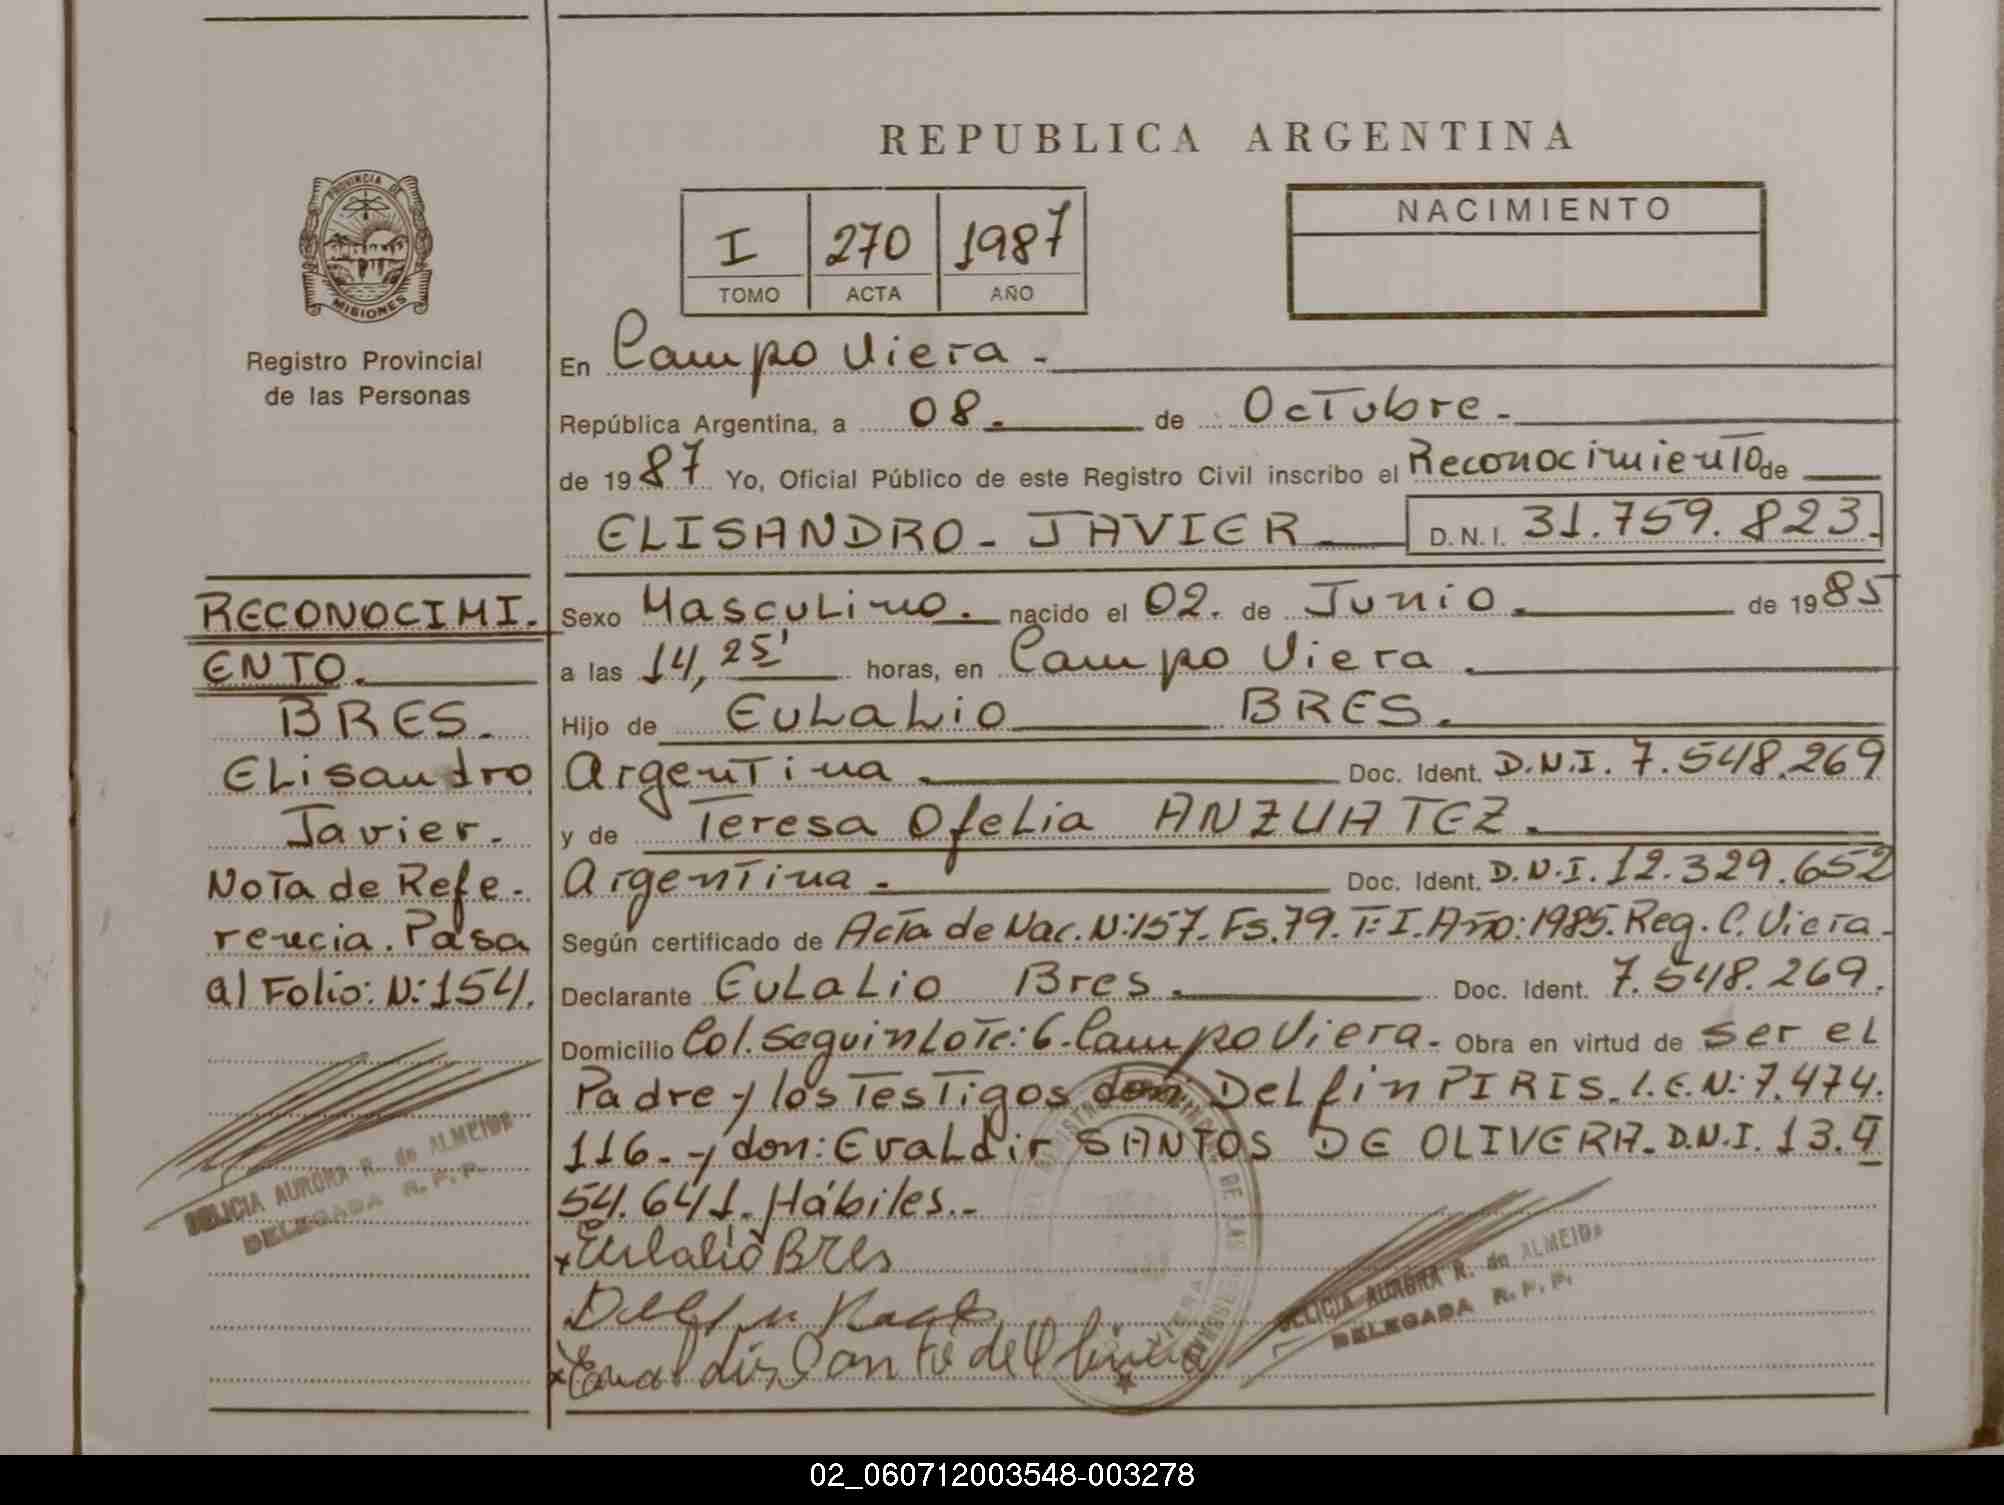 REPUBLICA ARGENTINA
PROVINCIA DE
MISIONES
Registro Provincial
de las Personas
I 270 1987
TOMO ACTA AÑO
NACIMIENTO
En Campo Viera.
República Argentina, a 08. de Octubre.
de 1987 Yo, Oficial Público de este Registro Civil inscribo el Reconocimiento de
ELISANDRO - JAVIER D.N.I. 31.759.823.
Sexo Masculino. nacido el 02. de Junio. de 1985
a las 14,25' horas, en Campo Viera.
Hijo de Eulalio BRES.
Argentina. Doc. Ident. D.N.I. 7.548.269
y de Teresa Ofelia ANZUATEZ.
Argentina. Doc. Ident. D.N.I. 12.329.652
Según certificado de Acta de Nac. N:157. Fs.79. T:I. Año:1985. Reg. C. Viera.
Declarante Eulalio Bres. Doc. Ident. 7.548.269.
Domicilio Col. Seguin Lote: 6. Campo Viera. Obra en virtud de ser el
Padre y los Testigos don: Delfin PIRIS. L.E.N: 7.474.
116. y don: Evaldir SANTOS DE OLIVERA. D.N.I. 13.4
54.641. Hábiles.-
x Eulalio Bres
RECONOCIMI.
ENTO.
BRES.
Elisandro
Javier.
Nota de Refe.
rencia. Pasa
al Folio: N: 154.
DELICIA AURORA R. de ALMEIDA
DELEGADA R.P.P.
DELICIA AURORA R. de ALMEIDA
DELEGADA R.P.P.
02_060712003548-003278